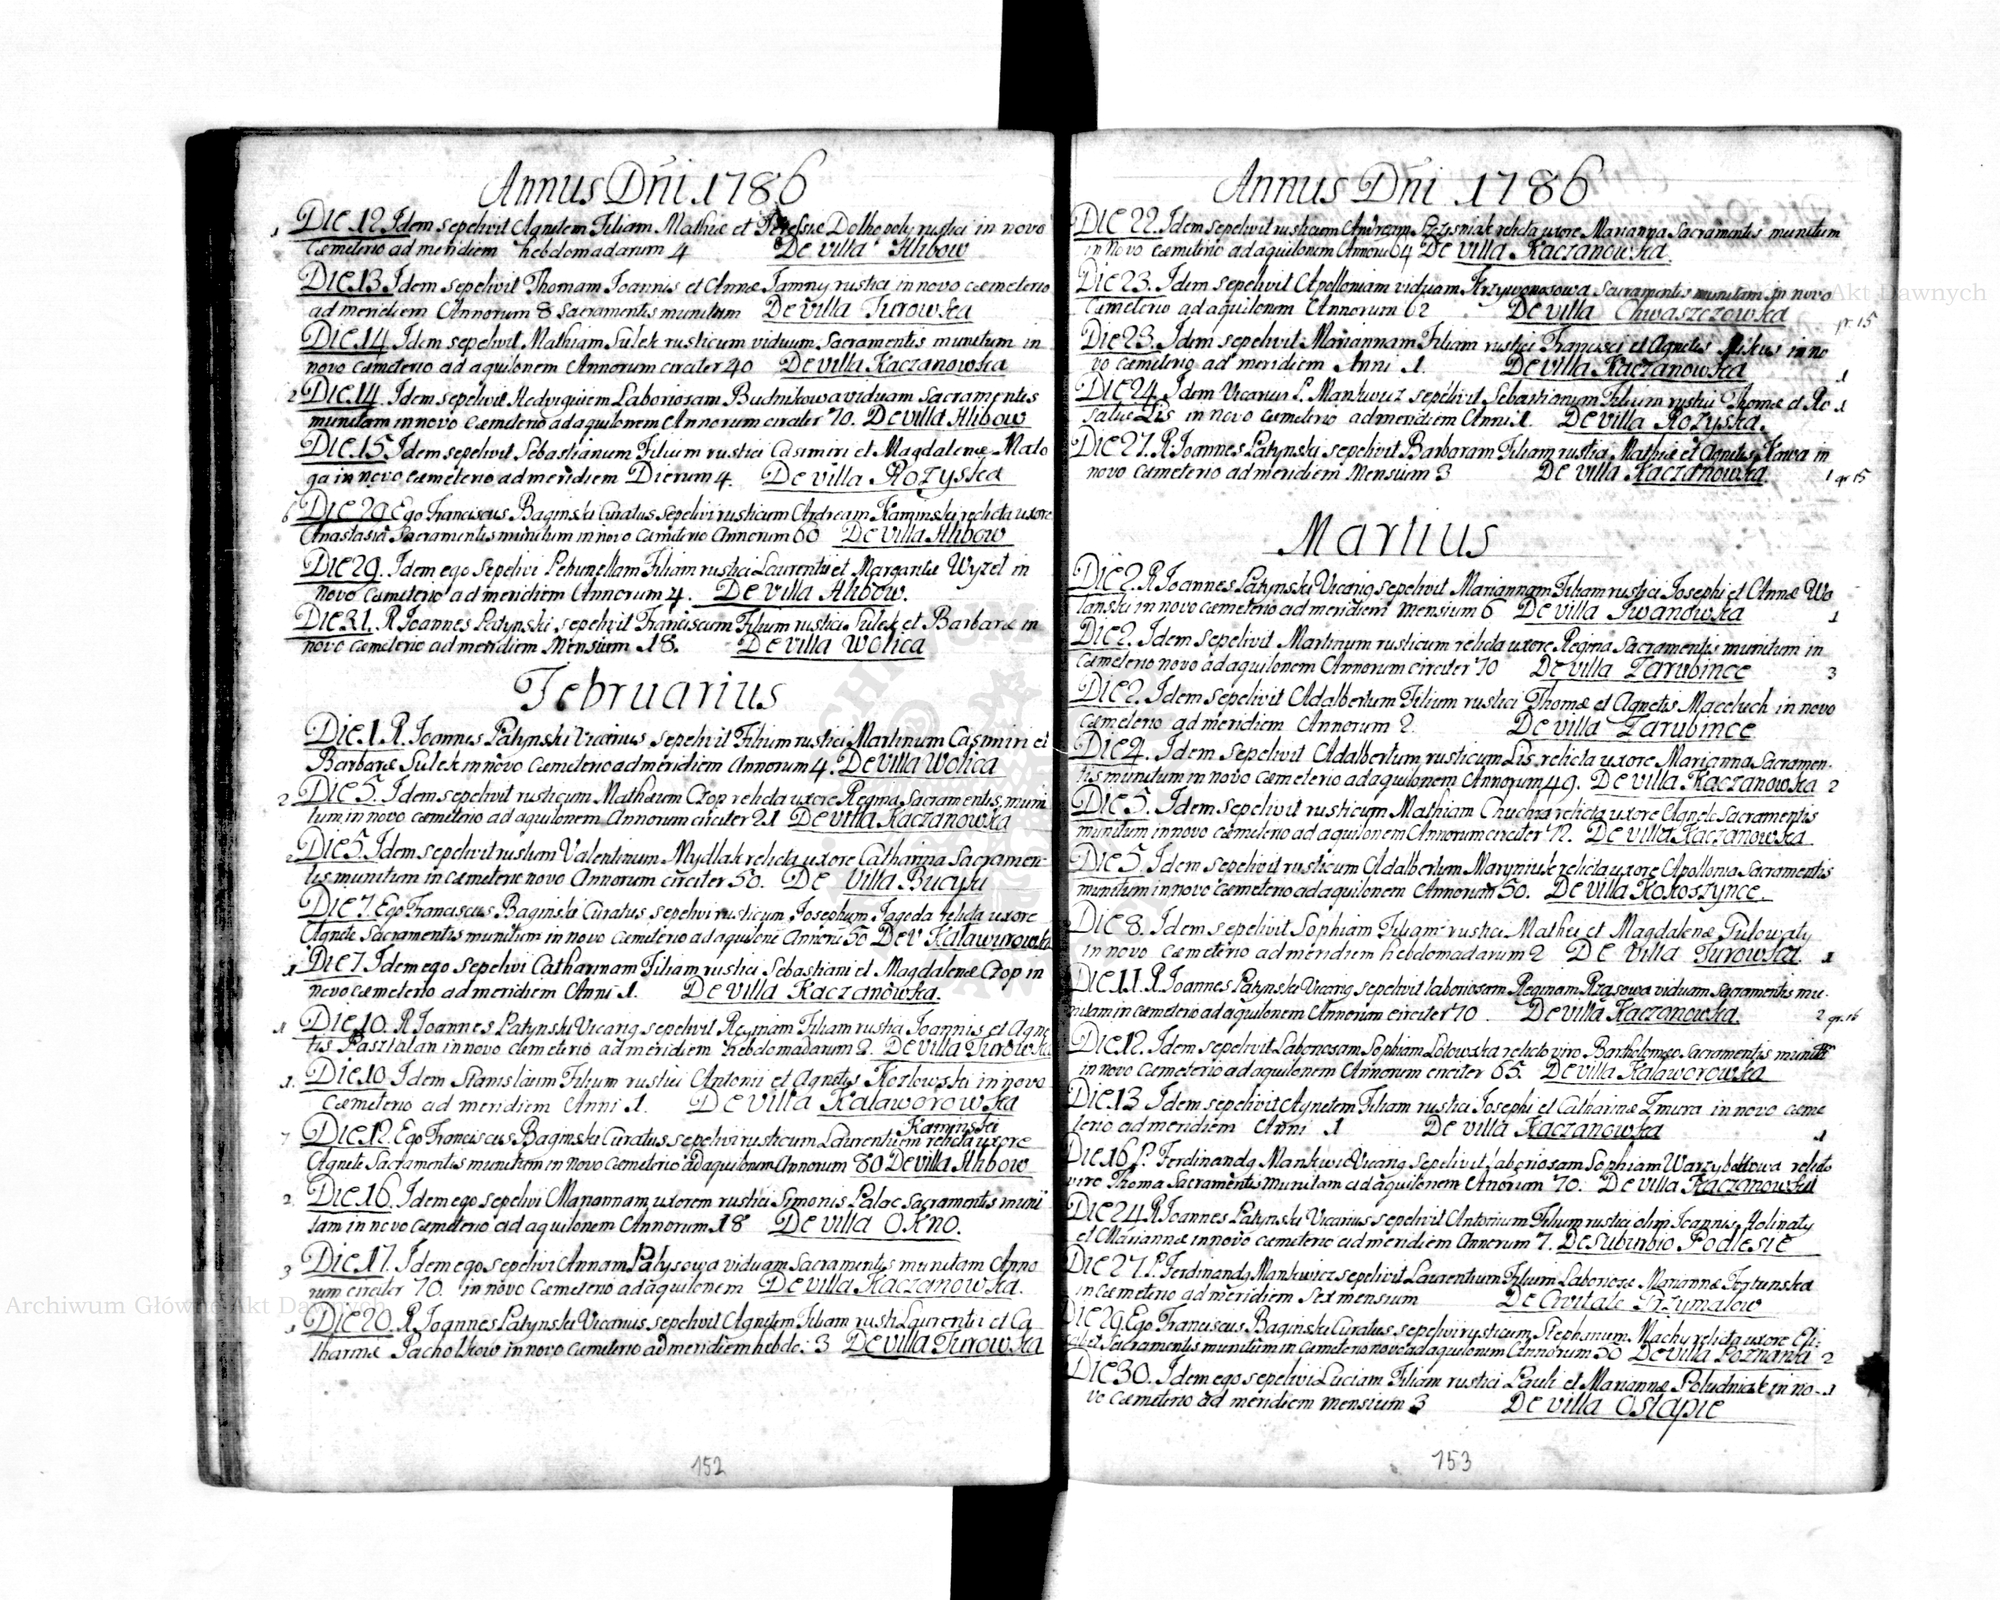 Annus Dni 1786
1 Die 12. Idem sepelivit Agnetem Filiam Mathiæ et Theresiæ Dolhovoly rustici in novo
Cæmeterio ad meridiem hebdomadarum 4 De villa Hlibow
Die 13 Idem sepelivit Thomam Joannis et Annæ Jamny rustici in novo cæmeterio
ad meridiem Annorum 8 Sacramentis munitum De villa Turowka
Die 14. Idem sepelivit Mathiam Sulek rusticum viduum Sacramentis munitum in
novo cæmeterio ad aquilonem Annorum circiter 40 De villa Kaczanowka
2 Die 14. Idem sepelivit Hedvigiem Laboriosam Budnikowa viduam Sacramentis
munitam in novo cæmeterio ad aquilonem Annorum circiter 70. De villa Hlibow
Die 15. Idem sepelivit Sebastianum Filium rustici Casimiri et Magdalenæ Mato
ga in novo cæmeterio ad meridiem Dierum 4. De villa Rożyska
6 Die 29. Ego Franciscus Baginski Curatus sepelivi rusticum Andream Kaminski relicta uxore
Anastasia Sacramentis munitum in novo Cæmeterio Annorum 60 De villa Hlibow
Die 29. Idem ego sepelivi Petrunellam Filiam rustici Laurentii et Margaritæ Wyzel in
novo cæmeterio ad meridiem Annorum 4. De villa Hlibow.
Die 21. R Joannes Patynski sepelivit Franciscum Filium rustici Sulek et Barbaræ in
novo cæmeterio ad meridiem Mensium 18. De villa Wolica
Februarius
Die 1. R. Joannes Patynski Vicarius sepelivit Filium rustici Martinum Casimiri et
Barbaræ Sulek in novo cæmeterio ad meridiem Annorum 4. De villa Wolica
2 Die 5. Idem sepelivit rusticum Mathæum Czop relicta uxore Regina Sacramentis muni
tum in novo cæmeterio ad aquilonem Annorum circiter 21 De villa Kaczanowka
2 Die 5. Idem sepelivit rusticum Valentinum Mydlak relicta uxore Catharina Sacramen-
tis munitum in cæmeterio novo Annorum circiter 50. De villa Bucyki
Die 7. Ego Franciscus Baginski Curatus sepelivi rusticum Josephum Jagoda relicta uxore
Agnete Sacramentis munitum in novo cæmeterio ad aquilone Annoru 50 De V Kalawurowka
1 Die 7 Idem ego sepelivi Catharinam Filiam rustici Sebastiani et Magdalenæ Czop in
novo cæmeterio ad meridiem Anni 1. De villa Kaczanowka.
1 Die 10. R Joannes Patynski Vicarig sepelivit Reginam Filiam rustici Joannis et Agne
tis Pasztalan in novo cæmeterio ad meridiem hebdomadarum 2. De villa Turowka
1. Die 10. Idem Stanislaum Filium rustici Antonii et Agnetis Kozlowski in novo
Cæmeterio ad meridiem Anni 1. De villa Kalaworowka
Kaminski
7 Die 12. Ego Franciscus Baginski Curatus sepelivi rusticum Laurentium relicta uxore
Agnete Sacramentis munitum in novo Cæmeterio ad aquilonem Annorum 80 De villa Hlibow
2. Die 16. Idem ego sepelivi Mariannam uxorem rustici Simonis Palac Sacramentis muni
tam in novo cæmeterio ad aquilonem Annorum 18 De villa OKno.
3 Die 17. Idem ego sepelivi Annam Patysowa viduam Sacramentis munitam Anno
rum circiter 70. in novo Cæmeterio ad aquilonem De villa Kaczanowka.
1 Die 20. R Joannes Patynski Vicarius sepelivit Agnetem Filiam rusti Laurentii et Ca
tharinæ Pacholkow in novo cæmeterio ad meridiem hebdo: 3 De villa Turowka
152
Annus Dni 1786
Die 22. Idem sepelivit rusticum Andream relicta uxore Marianna Sacramentis munitum
in Novo cæmeterio ad aquilonem Annoru 64 De villa Kaczanowka.
Die 23. Idem sepelivit Apolloniam viduam Krzywonosowa Sacramentis munitam in novo
Cæmeterio ad aquilonem Annorum 62 De villa Chwaszczowka
gr. 15
Die 23. Idem sepelivit Mariannam Filiam rustici Francisci et Agnetis Mikus in no
vo cæmeterio ad meridiem Anni 1. De villa Kaczanowka 1
Die 24. Idem Vicarius F. Mankwicz sepelivit Sebastianum Filium rustici Thomæ et Ro
saliæ Lis in novo cæmeterio ad meridiem Anni 1. De villa Rożyska. 1
Die 27. R. Joannes Patynski sepelivit Barbaram Filiam rustici Mathiæ et Agnetis Kawa in
novo cæmeterio ad meridiem Mensium 3 De villa Kaczanowka. 1 gr 15
Martius
Die 2. R Joannes Patynski Vicarig sepelivit Mariannam Filiam rustici Josephi et Annæ Wo
lanski in novo cæmeterio ad meridiem Mensium 6 De villa Iwanowka 1
Die 2. Idem sepelivit Martinum rusticum relicta uxore Regina Sacramentis munitum in
cæmeterio novo ad aquilonem Annorum circiter 70 De villa Zarubince 3
Die 2. Idem sepelivit Adalbertum Filium rustici Thomæ et Agnetis Maceluch in novo
cæmeterio ad meridiem Annorum 2. De villa Zarubince
Die 4. Idem sepelivit Adalbertum rusticum Lis relicta uxore Marianna Sacramen-
tis munitum in novo cæmeterio ad aquilonem Annorum 49. De villa Kaczanowka 2
Die 5. Idem sepelivit rusticum Mathiam Chuchra relicta uxore Agnete Sacramentis
munitum in novo cæmeterio ad aquilonem Annorum circiter 72. De villa Kaczanowka
Die 5. Idem sepelivit rusticum Adalbertum Maryniuk relicta uxore Apollonia Sacramentis
munitum in novo cæmeterio ad aquilonem Annorum 50. De villa Kokoszynce.
Die 8. Idem sepelivit Sophiam Filiam rustici Mathei et Magdalenæ Fulowaty
in novo cæmeterio ad meridiem hebdomadarum 2 De villa Turowka. 1
Die 11. R Joannes Patynski Vicarig sepelivit laboriosam Reginam Rząsowa viduam Sacramentis mu-
nitam in cæmeterio ad aquilonem Annorum circiter 70. De villa Kaczanowka. 2 gr. 16
Die 12. Idem sepelivit Laboriosam Sophiam Lotowska relicto viro Bartholomæo Sacramentis munita
in novo cæmeterio ad aquilonem Annorum circiter 65. De villa Kalaworowka
Die 13 Idem sepelivit Agnetem Filiam rustici Josephi et Catharinæ Zmura in novo cæme
terio ad meridiem Anni 1 De villa Kaczanowka 1
Die 16 F. Ferdinandg Mankwic Vicarig sepelivit laboriosam Sophiam relicto
viro Thoma Sacramentis Munitam ad aquilonem Annorum 70. De villa Kaczanowka
Die 24 R Joannes Patynski Vicarius sepelivit Antonium Filium rustici olim Joannis Holinaty
et Mariannæ in novo cæmeterio ad meridiem Annorum 7. De Suburbio Podlesie
Die 27. F. Ferdinandg Mankwicz sepelivit Laurentium Filium Laboriosæ Mariannæ
in cæmeterio ad meridiem sex mensium De Civitate Grzymalow
Die 29. Ego Franciscus Baginski Curatus sepelivi rusticum Stephanum Machy relicta uxore Eli:
Sacramentis munitum in cæmeterio novo ad aquilonem Annorum 50 De villa Poznanka 2
Die 30. Idem ego sepelivi Luciam Filiam rustici Pauli et Mariannæ Poludniak in no- 1
vo cæmeterio ad meridiem mensium 3 De villa Ostapie
153
Archiwum Główne Akt Dawnych